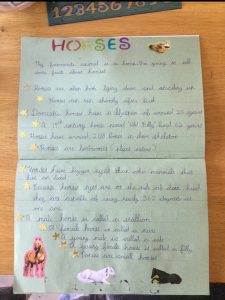 1234567890
HORSES
My favourite animal is a horse. I'm going to tell
some facts about horses!
Horses can sleep both lying down and standing up
Horses can run shortly after birth
Domestic horses have a lifespan of around 25 years
A 19th century horse named 'Old Billy' lived 62 years
Horses have around 205 bones in their skeleton
Horses are herbivores (plant eaters)
Horses have bigger eyes than other mammals that
live on land
Because horses eyes are on the side of their head
they are capable of seeing nearly 360 degrees at
one time
A male horse is called a stallion
A female horse is called a mare
A young male is called a colt
A young female horse is called a filly
Ponies are small horses!